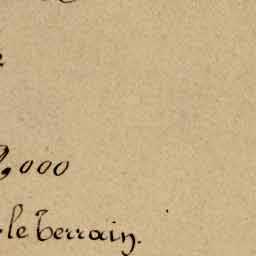 ,000
le Terrain.